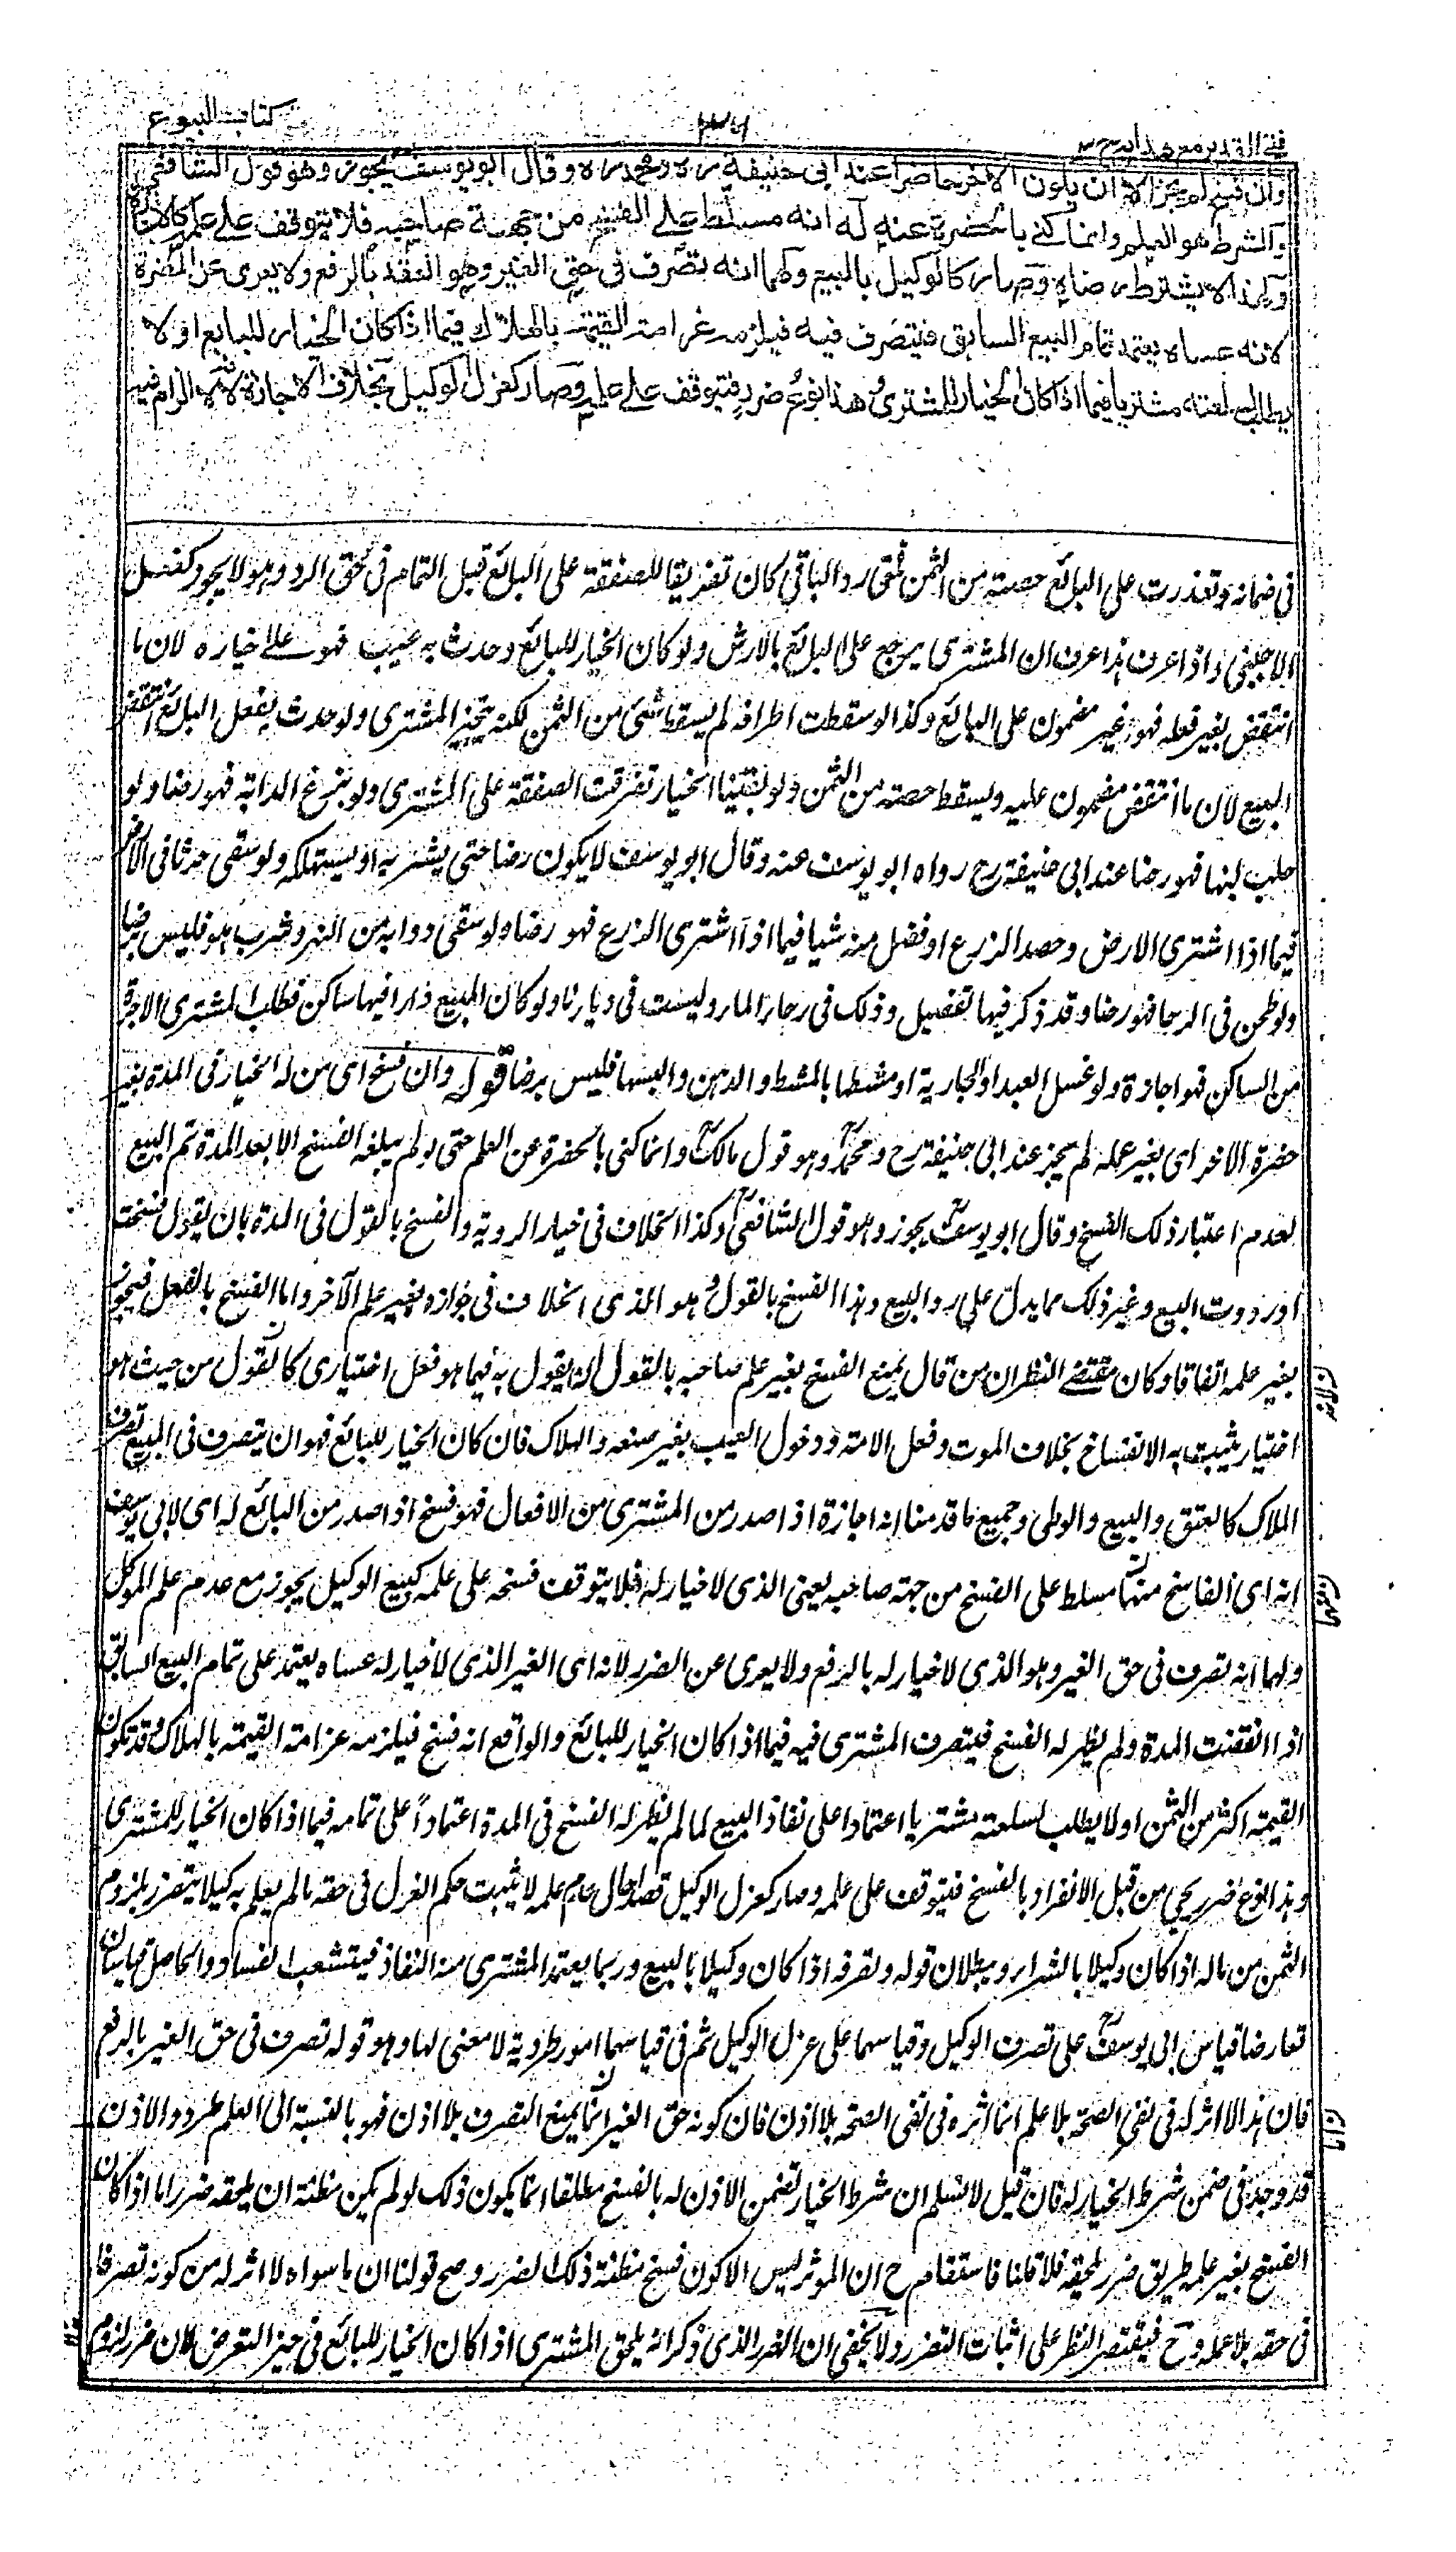 فتح القدير مع هدايه ج ٣
كتاب البيوع
وان فسخ لم يجز الا ان يكون الاخر حاضرا عند ابى حنيفة رہ ومحمد رہ وقال ابو يوسف يجوز وهو قول الشافعى
والشرط هو العلم وانما كنى بالحضرة عنه له انه مسلط على الفسخ من جهة صاحبه فلا يتوقف على علمه كالاجازة
ولهذا لا يشترط رضاه وصار كالوكيل بالبيع ولهما انه تصرف فى حق الغير وهو العقد بالرفع ولا يعرى عن المضرة
لانه عساه يعتمد تمام البيع السابق فيتصرف فيه فيلزمه غرامة القيمة بالهلاك فيما اذا كان الخيار للبايع او لا
يطلب لسلعته مشتريا فيما اذا كان الخيار للمشترى وهذا نوع ضرر فيتوقف على علمه وصار كعزل الوكيل بخلاف الاجازة لانه لا الزام فيه
فى ضمانه وتعذرت على البائع حصته من الثمن فلو رد الباقى كان تفريقا للصفقة على البائع قبل التمام فى حق الرد وهو لا يجوز كفعل
الاجنبى واذا عرف هذا عرف ان المشترى يرجع على البائع بالارش ولو كان الخيار للبائع وحدث به عيب فهو على خياره لان ما
انتقض بغير فعله فهو غير مضمون على البائع وكذا لو سقطت اطرافه لم يسقط شئ من الثمن لكنه يتخير المشترى ولو حدث بفعل البائع انتقض
البيع لان ما انتقض مضمون عليه ويسقط حصته من الثمن ولو بقينا الخيار تفرقت الصفقة على المشترى ولو بزغ الدابة فهو رضا ولو
حلب لبنها فهو رضا عند ابى حنيفة رح رواه ابو يوسف عنه وقال ابو يوسف لا يكون رضا حتى يشربه او يستهلكه ولو سقى حرثا فى الارض
فيما اذا اشترى الارض وحصد الزرع او فصل منه شيا فيما اذا اشترى الزرع فهو رضا ولو سقى دوابه من النهر وشرب هو فليس برضا
ولو طحن فى الرحا فهو رضا وقد ذكر فيها تفصيل وذلك فى رحا الماء وليست فى ديارنا ولو كان المبيع دارا فيها ساكن فطلب المشترى الاجرة
من الساكن فهو اجازة ولو غسل العبد او الجارية او مشطها بالمشط والدهن والبسها فليس برضا قوله وان فسخ اى من له الخيار فى المدة بغير
حضرة الاخر اى بغير علمه لم يجز عند ابى حنيفة رح ومحمد وهو قول مالك وانما كنى بالحضرة عن العلم حتى لو لم يبلغه الفسخ الا بعد المدة تم البيع
لعدم اعتبار ذلك الفسخ وقال ابو يوسف يجوز وهو قول الشافعى وكذا الخلاف فى خيار الروية والفسخ بالقول فى المدة بان يقول فسخت
او رددت البيع وغير ذلك مما يدل على رد البيع وهذا الفسخ بالقول وهو الذى الخلاف فى جوازه بغير علم الآخر واما الفسخ بالفعل فيجوز
بغير علمه اتفاقا وكان مقتضى النظر ان من قال يمنع الفسخ بغير علم صاحبه بالقول ان يقول به فيما هو فعل اختيارى كالقول من حيث هو
اختيار يثبت به الانفساخ بخلاف الموت وفعل الامة ودخول العيب بغير صنعه والهلاك فان كان الخيار للبائع فهو ان يتصرف فى المبيع تصرف
الملاك كالعتق والبيع والوطى وجميع ما قدمنا انه اجازة اذا صدر من المشترى من الافعال فهو فسخ اذا صدر من البائع له اى لابى يوسف
انه اى الفاسخ منهما مسلط على الفسخ من جهة صاحبه يعنى الذى لا خيار له فلا يتوقف فسخه على علمه كبيع الوكيل يجوز مع عدم علم الموكل
ولهما انه تصرف فى حق الغير وهو الذى لا خيار له بالرفع ولا يعرى عن الضرر لانه اى الغير الذى لا خيار له عساه يعتمد على تمام البيع السابق
اذا انقضت المدة ولم يظهر له الفسخ فيتصرف المشترى فيه فيما اذا كان الخيار للبائع والواقع انه فسخ فيلزمه غرامة القيمة بالهلاك وقد تكون
القيمة اكثر من الثمن او لا يطلب لسلعته مشتريا اعتمادا على نفاذ البيع لما لم يظهر له الفسخ فى المدة اعتمادا على تمامه فيما اذا كان الخيار للمشترى
وهذا نوع ضرر يجئ من قبل الانفراد بالفسخ فيتوقف على علمه وصار كعزل الوكيل قصدا حال عدم علمه لا يثبت حكم العزل فى حقه ما لم يعلم به كيلا يتضرر بلزوم
الثمن من ماله اذا كان وكيلا بالشراء وببطلان قوله وتصرفه اذا كان وكيلا بالبيع وربما يعتمد المشترى منه النفاذ فيتشعب الفساد والحاصل قياسان
تعارضا قياس ابى يوسف على تصرف الوكيل وقياسهما على عزل الوكيل ثم فى قياسهما امور طردية لا معنى لها وهو قوله تصرف فى حق الغير بالرفع
فان هذا لا اثر له فى نفى الصحة بلا علم انما اثره فى نفى الصحة بلا اذن فان كونه حق الغير انما يمنع التصرف بلا اذن فهو بالنسبة الى العلم طرد والاذن
قد وجد فى ضمن شرط الخيار له فان قيل لا نسلم ان شرط الخيار تضمن الاذن له بالفسخ مطلقا انما يكون ذلك لو لم يكن مظنة ان يلحقه ضرر اما اذا كان
الفسخ بغير علمه طريق ضرر يلحقه فلا قلنا فاستقام ح ان الموثر ليس الا كون فسخ مظنة ذلك الضرر وصح قولنا ان ما سواه لا اثر له من كونه تصرفا
فى حقه بلا علمه وح فيقتصر النظر على اثبات التضرر ولا يخفى ان الضرر الذى ذكر انه يلحق المشترى اذا كان الخيار للبائع فى حيز التعرض لان ضرر لزوم